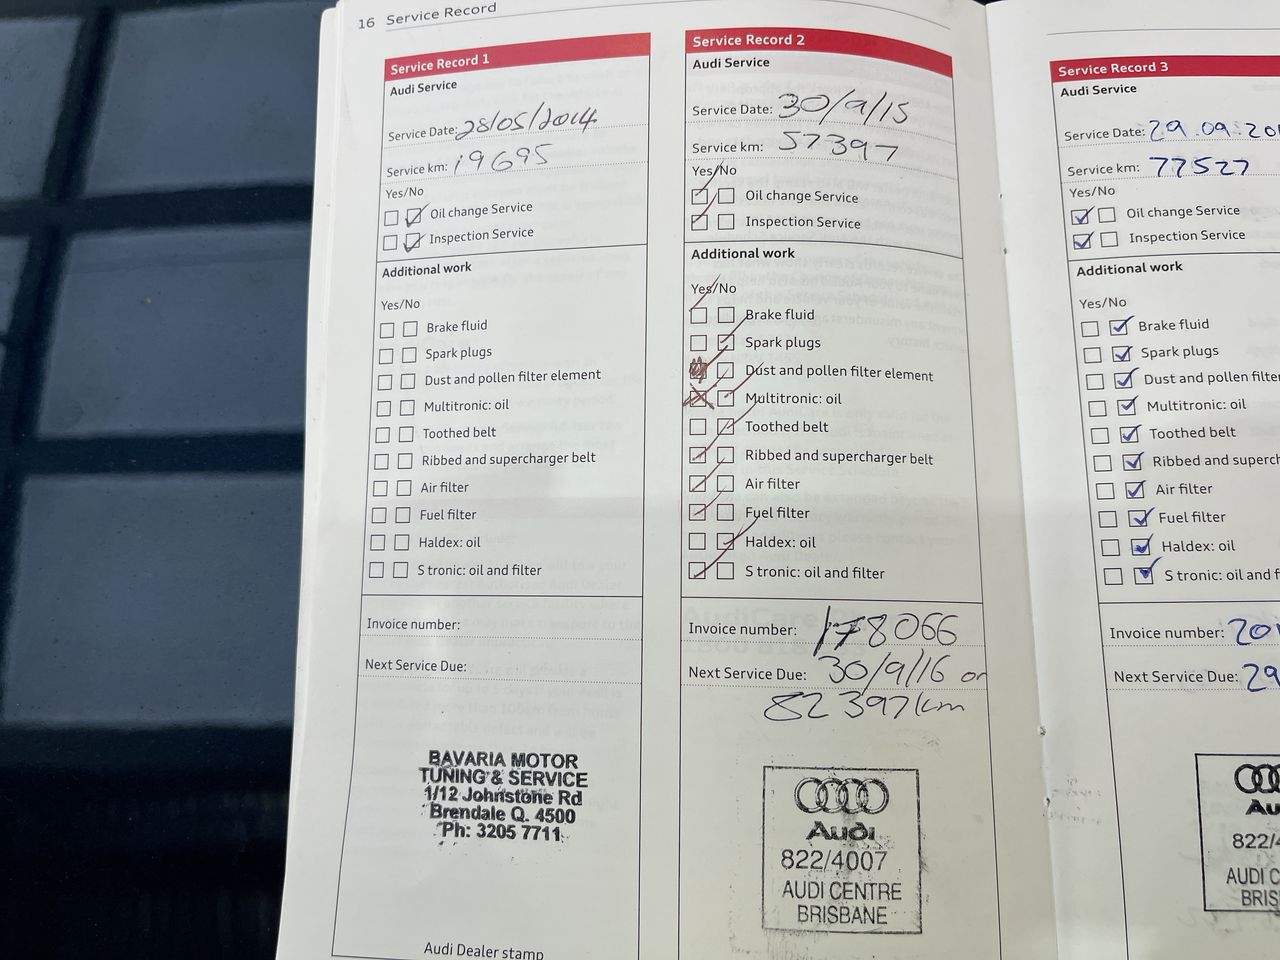 16 Service Record
Service Record 1
Audi Service
Service Date: 28/05/2014
Service km: 19695
Yes/No
Oil change Service
Inspection Service
Additional work
Yes/No
Brake fluid
Spark plugs
Dust and pollen filter element
Multitronic: oil
Toothed belt
Ribbed and supercharger belt
Air filter
Fuel filter
Haldex: oil
S tronic: oil and filter
Invoice number:
Next Service Due:
BAVARIA MOTOR
TUNING & SERVICE
1/12 Johnstone Rd
Brendale Q. 4500
Ph: 3205 7711
Audi Dealer stamp
Service Record 2
Audi Service
Service Date: 30/9/15
Service km: 57397
Yes/No
Oil change Service
Inspection Service
Additional work
Yes/No
Brake fluid
Spark plugs
Dust and pollen filter element
Multitronic: oil
Toothed belt
Ribbed and supercharger belt
Air filter
Fuel filter
Haldex: oil
S tronic: oil and filter
Invoice number: 178066
Next Service Due: 30/9/16 or
82397km
Audi
822/4007
AUDI CENTRE
BRISBANE
Service Record 3
Audi Service
Service Date: 29.09.20
Service km: 77527
Yes/No
Oil change Service
Inspection Service
Additional work
Yes/No
Brake fluid
Spark plugs
Dust and pollen filter
Multitronic: oil
Toothed belt
Ribbed and superch
Air filter
Fuel filter
Haldex: oil
S tronic: oil and f
Invoice number: 20
Next Service Due: 29
Au
822/4
AUDI C
BRIS